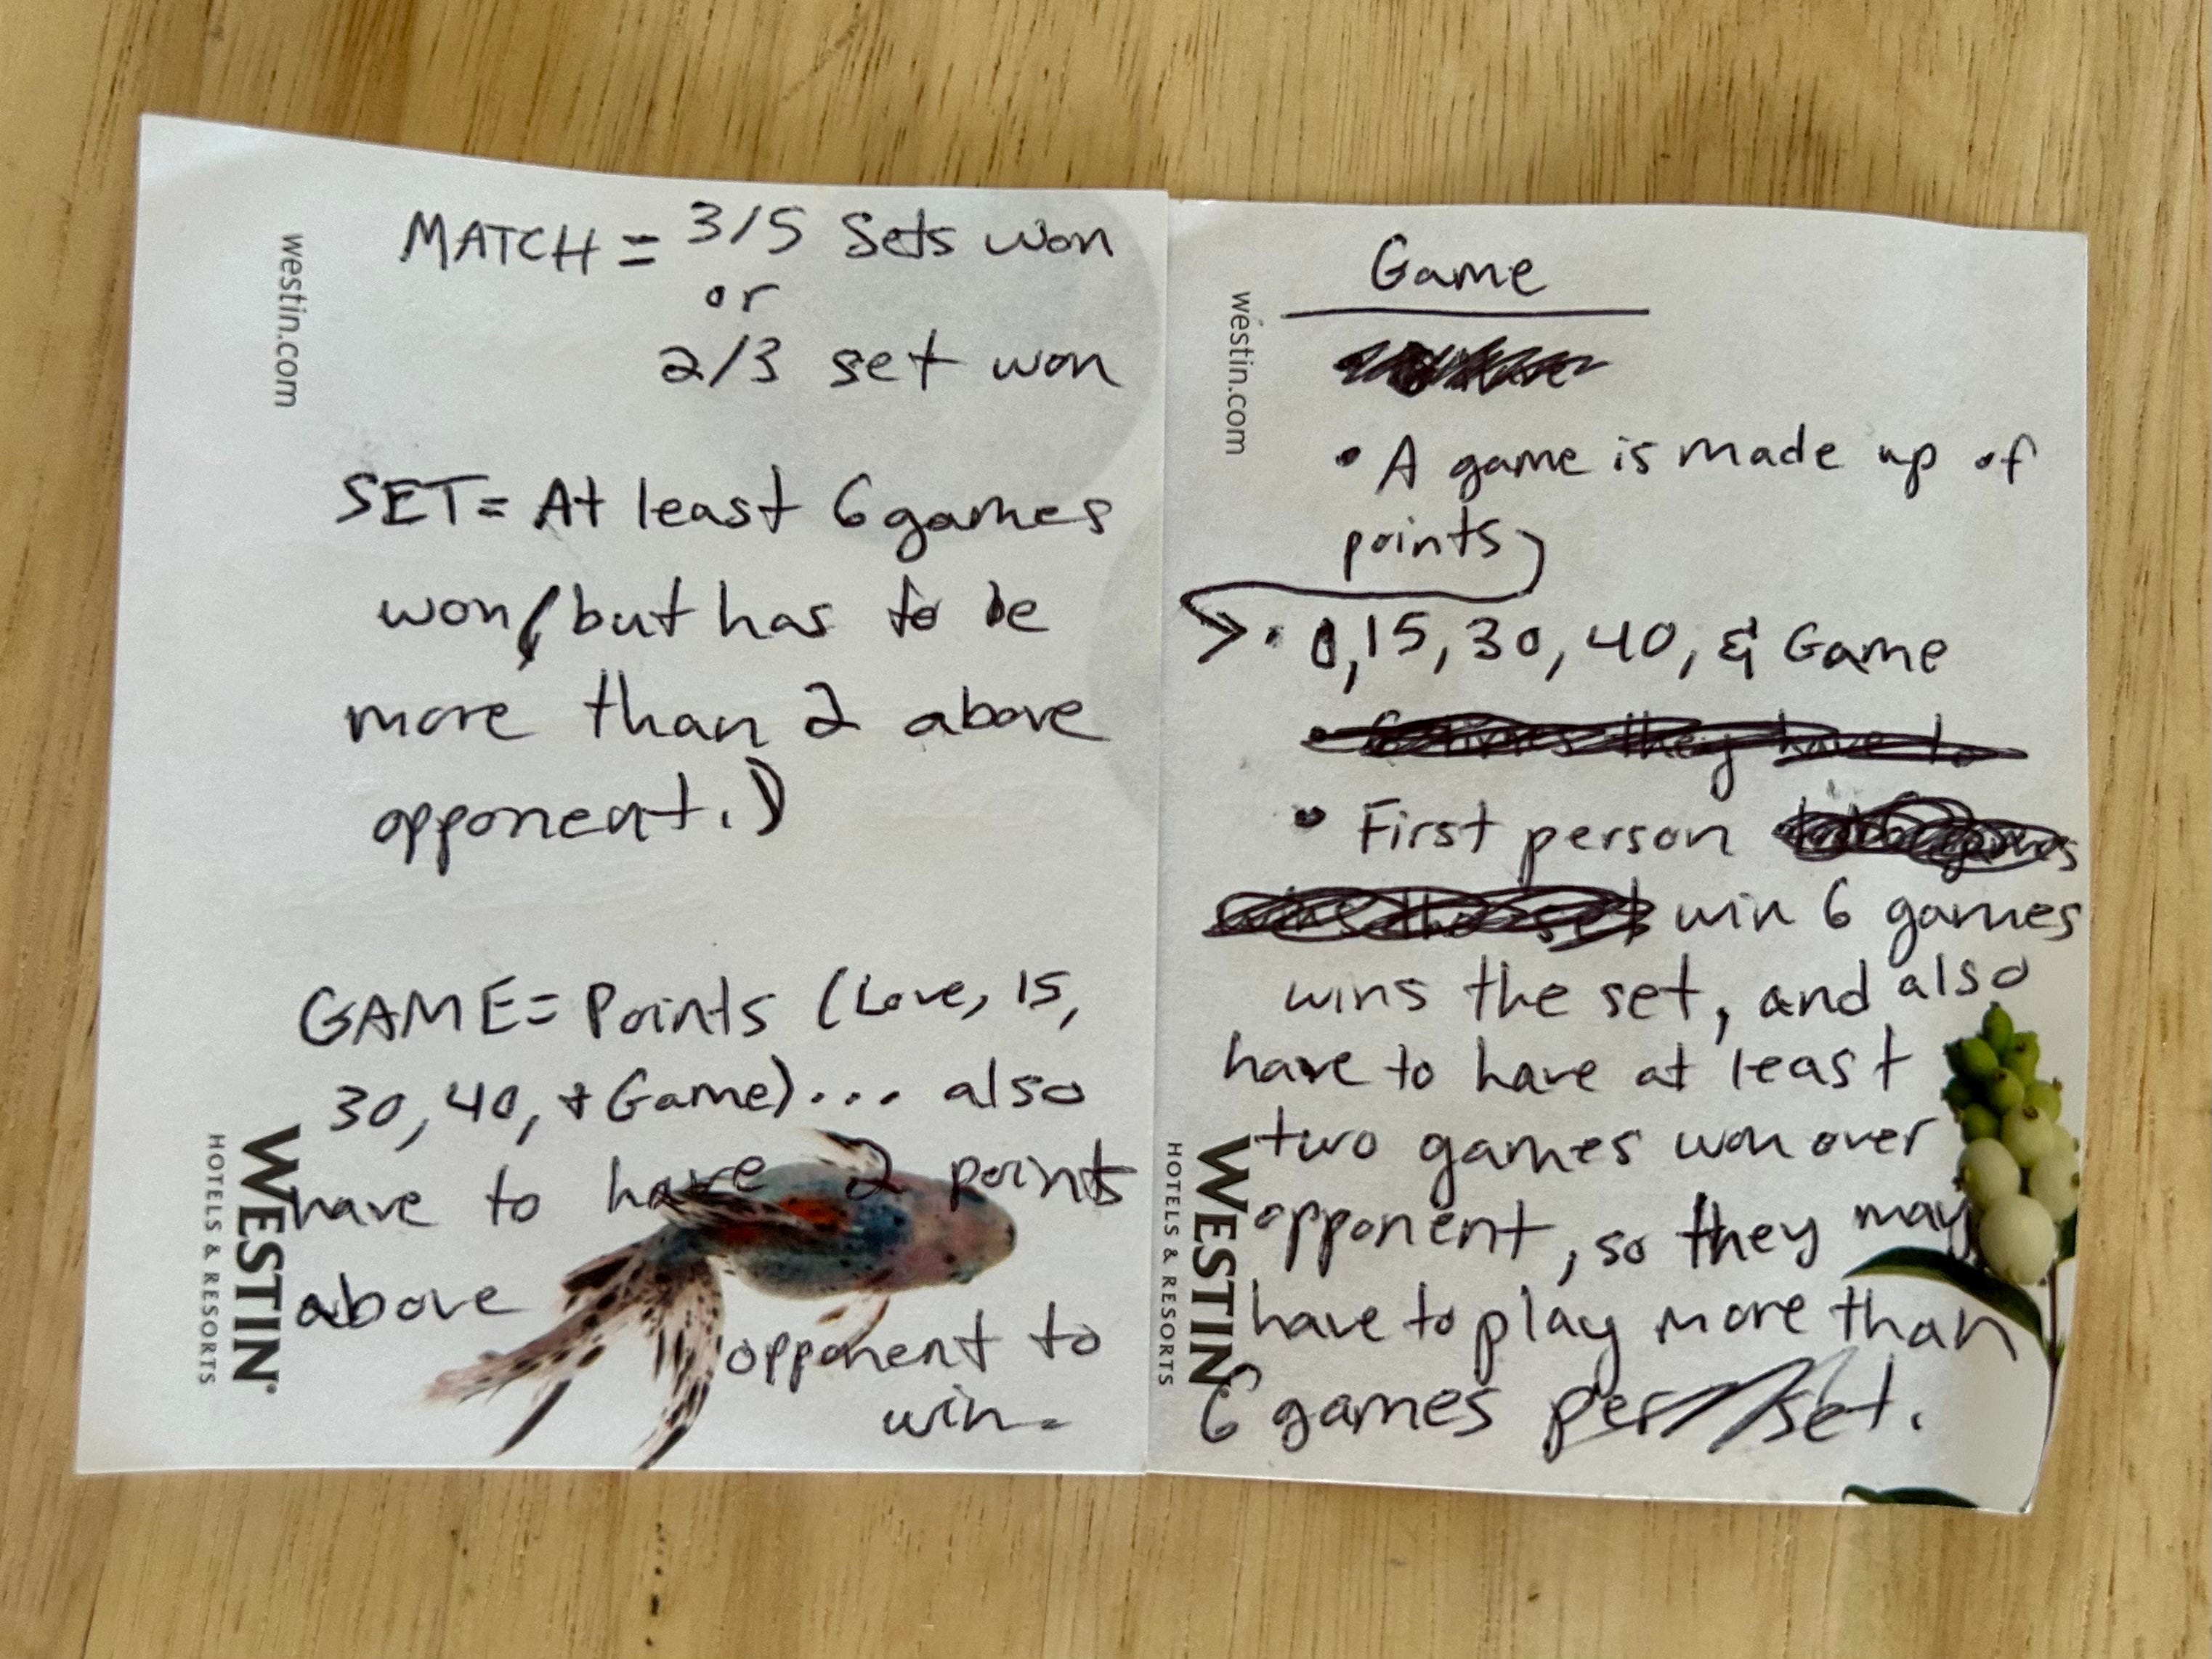 westin.com
MATCH = 3/5 Sets won
or
2/3 set won
SET= At least 6 games
won (but has to be
more than 2 above
opponent.)
GAME= Points (Love, 15,
30, 40, + Game)... also
have to have 2 points
above
opponent to
win.
WESTIN
HOTELS & RESORTS
westin.com
Game
• A game is made up of
points
• 0, 15, 30, 40, & Game
they have to
• First person
win 6 games
wins the set, and also
have to have at least
two games won over
opponent, so they may
have to play more than
6 games per set.
WESTIN
HOTELS & RESORTS